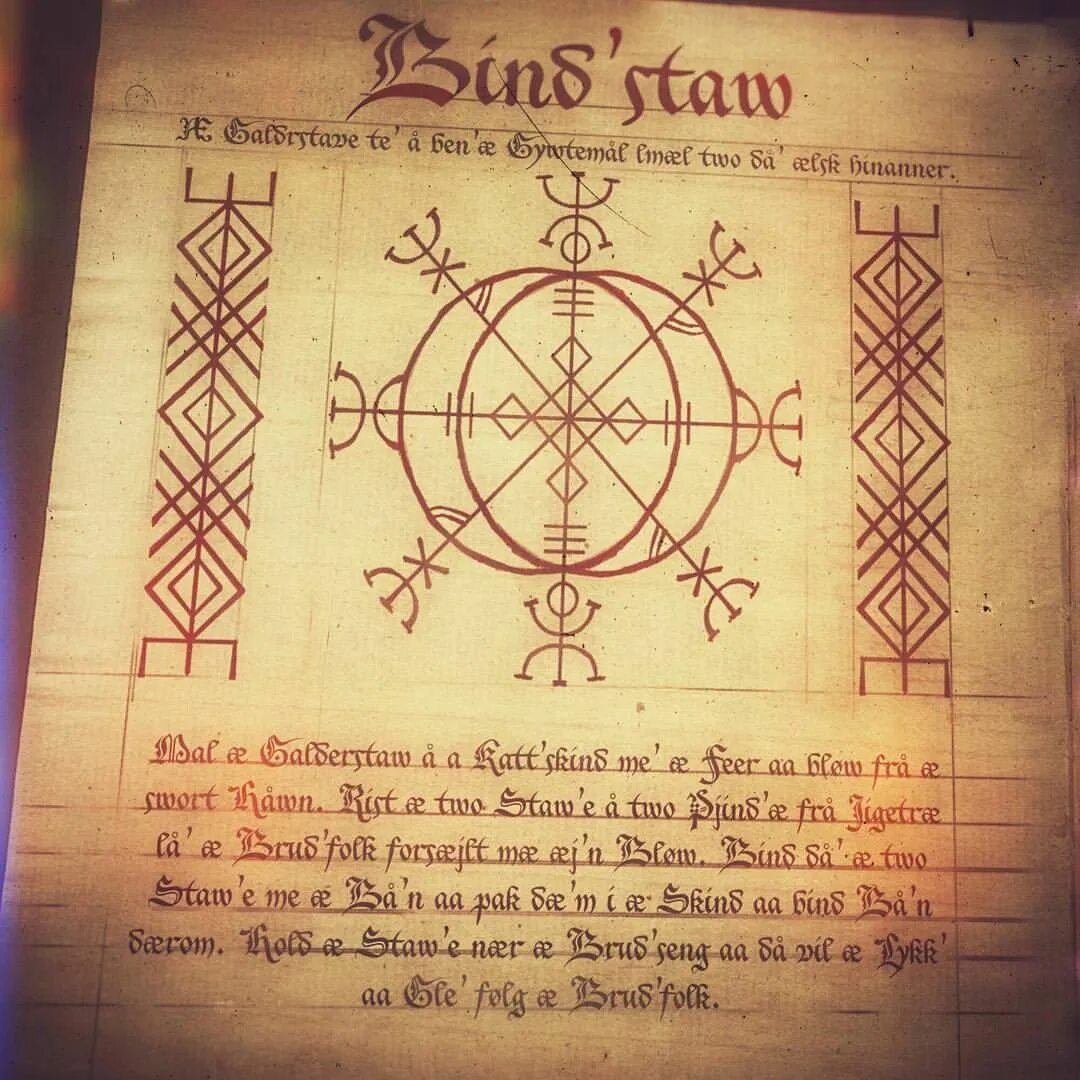 Bind'staw
Æ Galdrstave te' å ben'æ Gywtemål lmæl two då' ælsk hinanner.
Mal æ Galderstaw å a Katt'skind me' æ Feer aa bløw frå æ
swort Håwn. Rist æ two Staw'e å two Pjind'æ frå Jigetræ
lå' æ Brud'folk forsæjlt mæ æj'n Bløw. Bind då' æ two
Staw'e me æ Bå'n aa pak dæ'm i æ Skind aa bind Bå'n
dærom. Hold æ Staw'e nær æ Brud'seng aa då vil æ Lykk'
aa Gle' følg æ Brud'folk.